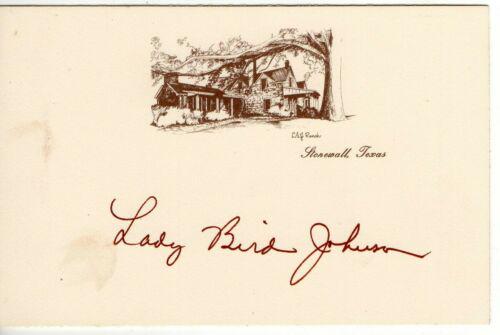 LBJ Ranch
Stonewall, Texas
Lady Bird Johnson